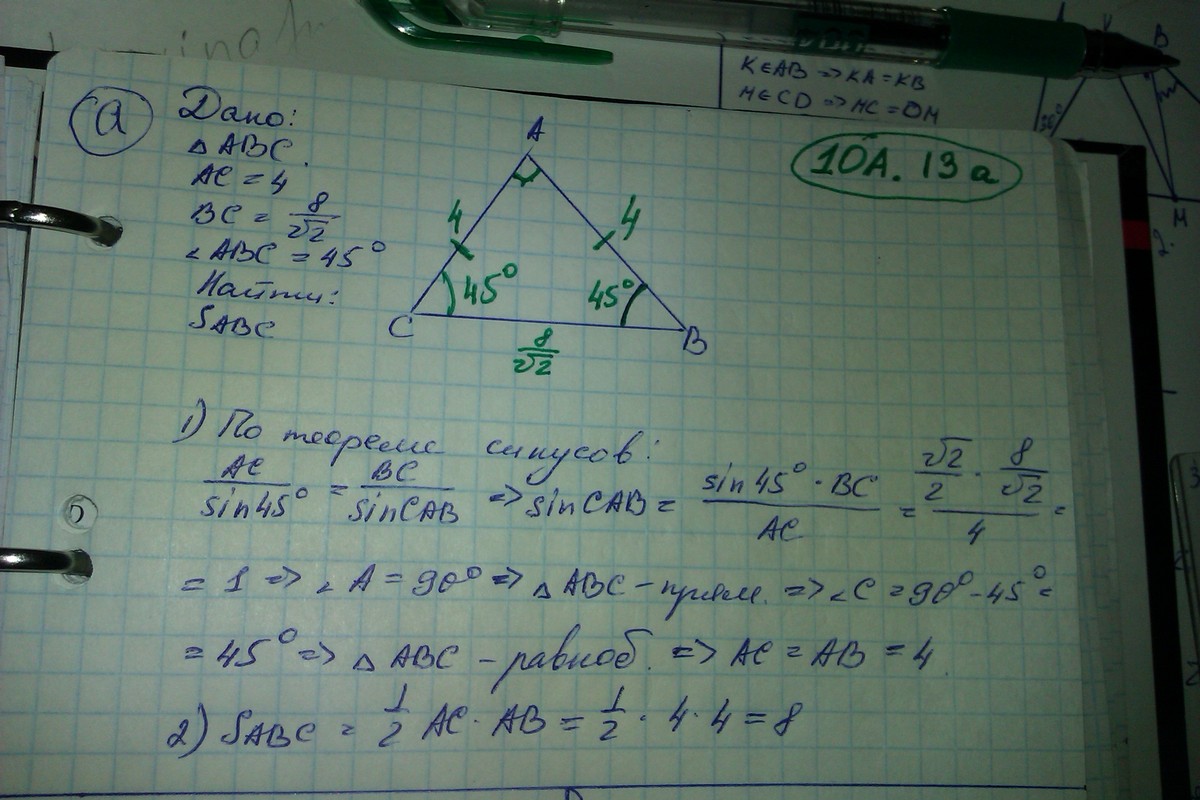 K∈AB => KA = KB
M∈CD => MC = DM
В
30°
М
2.
а
10А. 13а
Дано:
△ABC.
AC = 4
BC = 8/√2
∠ABC = 45°
Найти:
SABC
A
4
4
45°
45°
C
B
8/√2
1) По теореме синусов:
AC/sin45° = BC/sinCAB => sinCAB = (sin45° · BC)/AC = (√2/2 · 8/√2)/4 =
= 1 => ∠A = 90° => △ABC – прям. => ∠C = 90° – 45° =
= 45° => △ABC – равноб. => AC = AB = 4
2) SABC = 1/2 AC · AB = 1/2 · 4 · 4 = 8